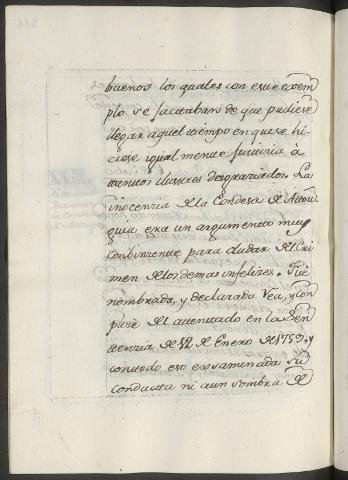 buenos los quales con este exem-
plo se jactaban de que pudiese
llegar aquel tiempo en que se hi-
ciese igual mente justicia à
tantos ilustres desgraziados. La
inocenzia de la Condesa de Atou-
guia era un argumento muy
conbinzente para dudar del Cri-
men de los demas infelizes. Fue
nombrada, y declarada Rea, y Con
plize del atentado en la Sen
tenzia de 12 de Enero de 1759. y
con todo eso exsaminada su
Conducta ni aun sombra de